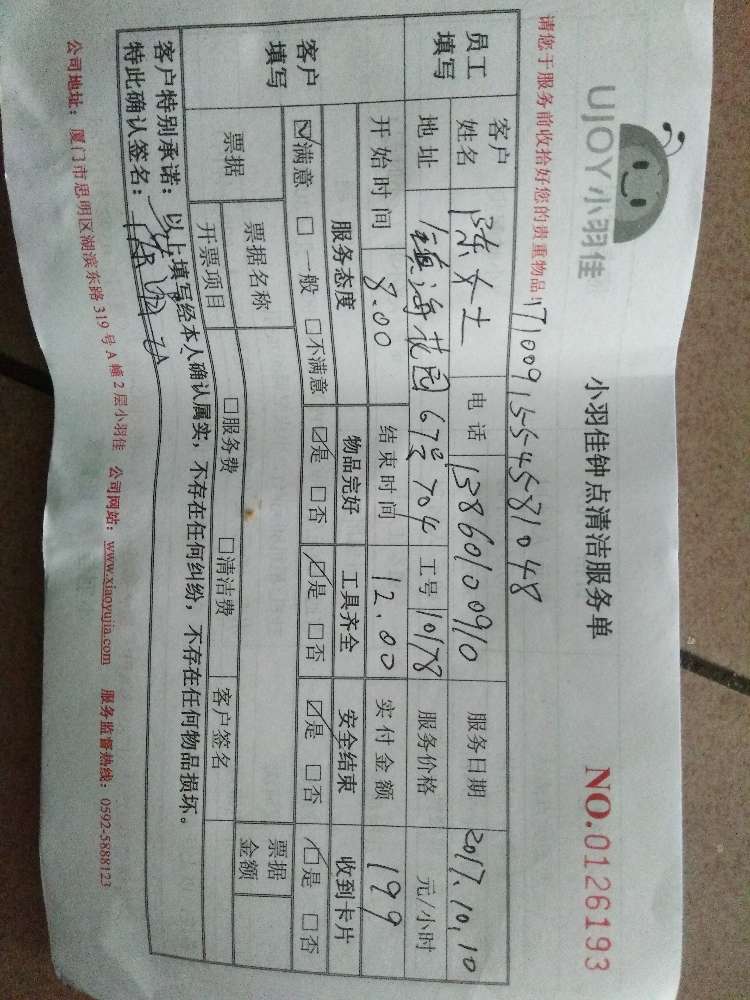 UJOY小羽佳
小羽佳钟点清洁服务单
NO.0126193
请您于服务前收拾好您的贵重物品!
171009155458 1048
员工填写
客户姓名 陈女士 电话 13860100910 服务日期 2017.10.10
地址 镇海花园67号704 工号 10178 服务价格 元/小时
开始时间 8.00 结束时间 12.00 实付金额 199
客户填写
服务态度 物品完好 工具齐全 安全结束 收到卡片
☑满意 □一般 □不满意 ☑是 □否 ☑是 □否 ☑是 □否 ☑是 □否
票据 票据名称 □服务费 □清洁费 票据金额
开票项目 客户签名
客户特别承诺:以上填写经本人确认属实,不存在任何纠纷,不存在任何物品损坏。
特此确认签名:
公司地址:厦门市思明区湖滨东路319号A幢2层小羽佳 公司网站:www.xiaoyujia.com 服务监督热线:0592-5888123